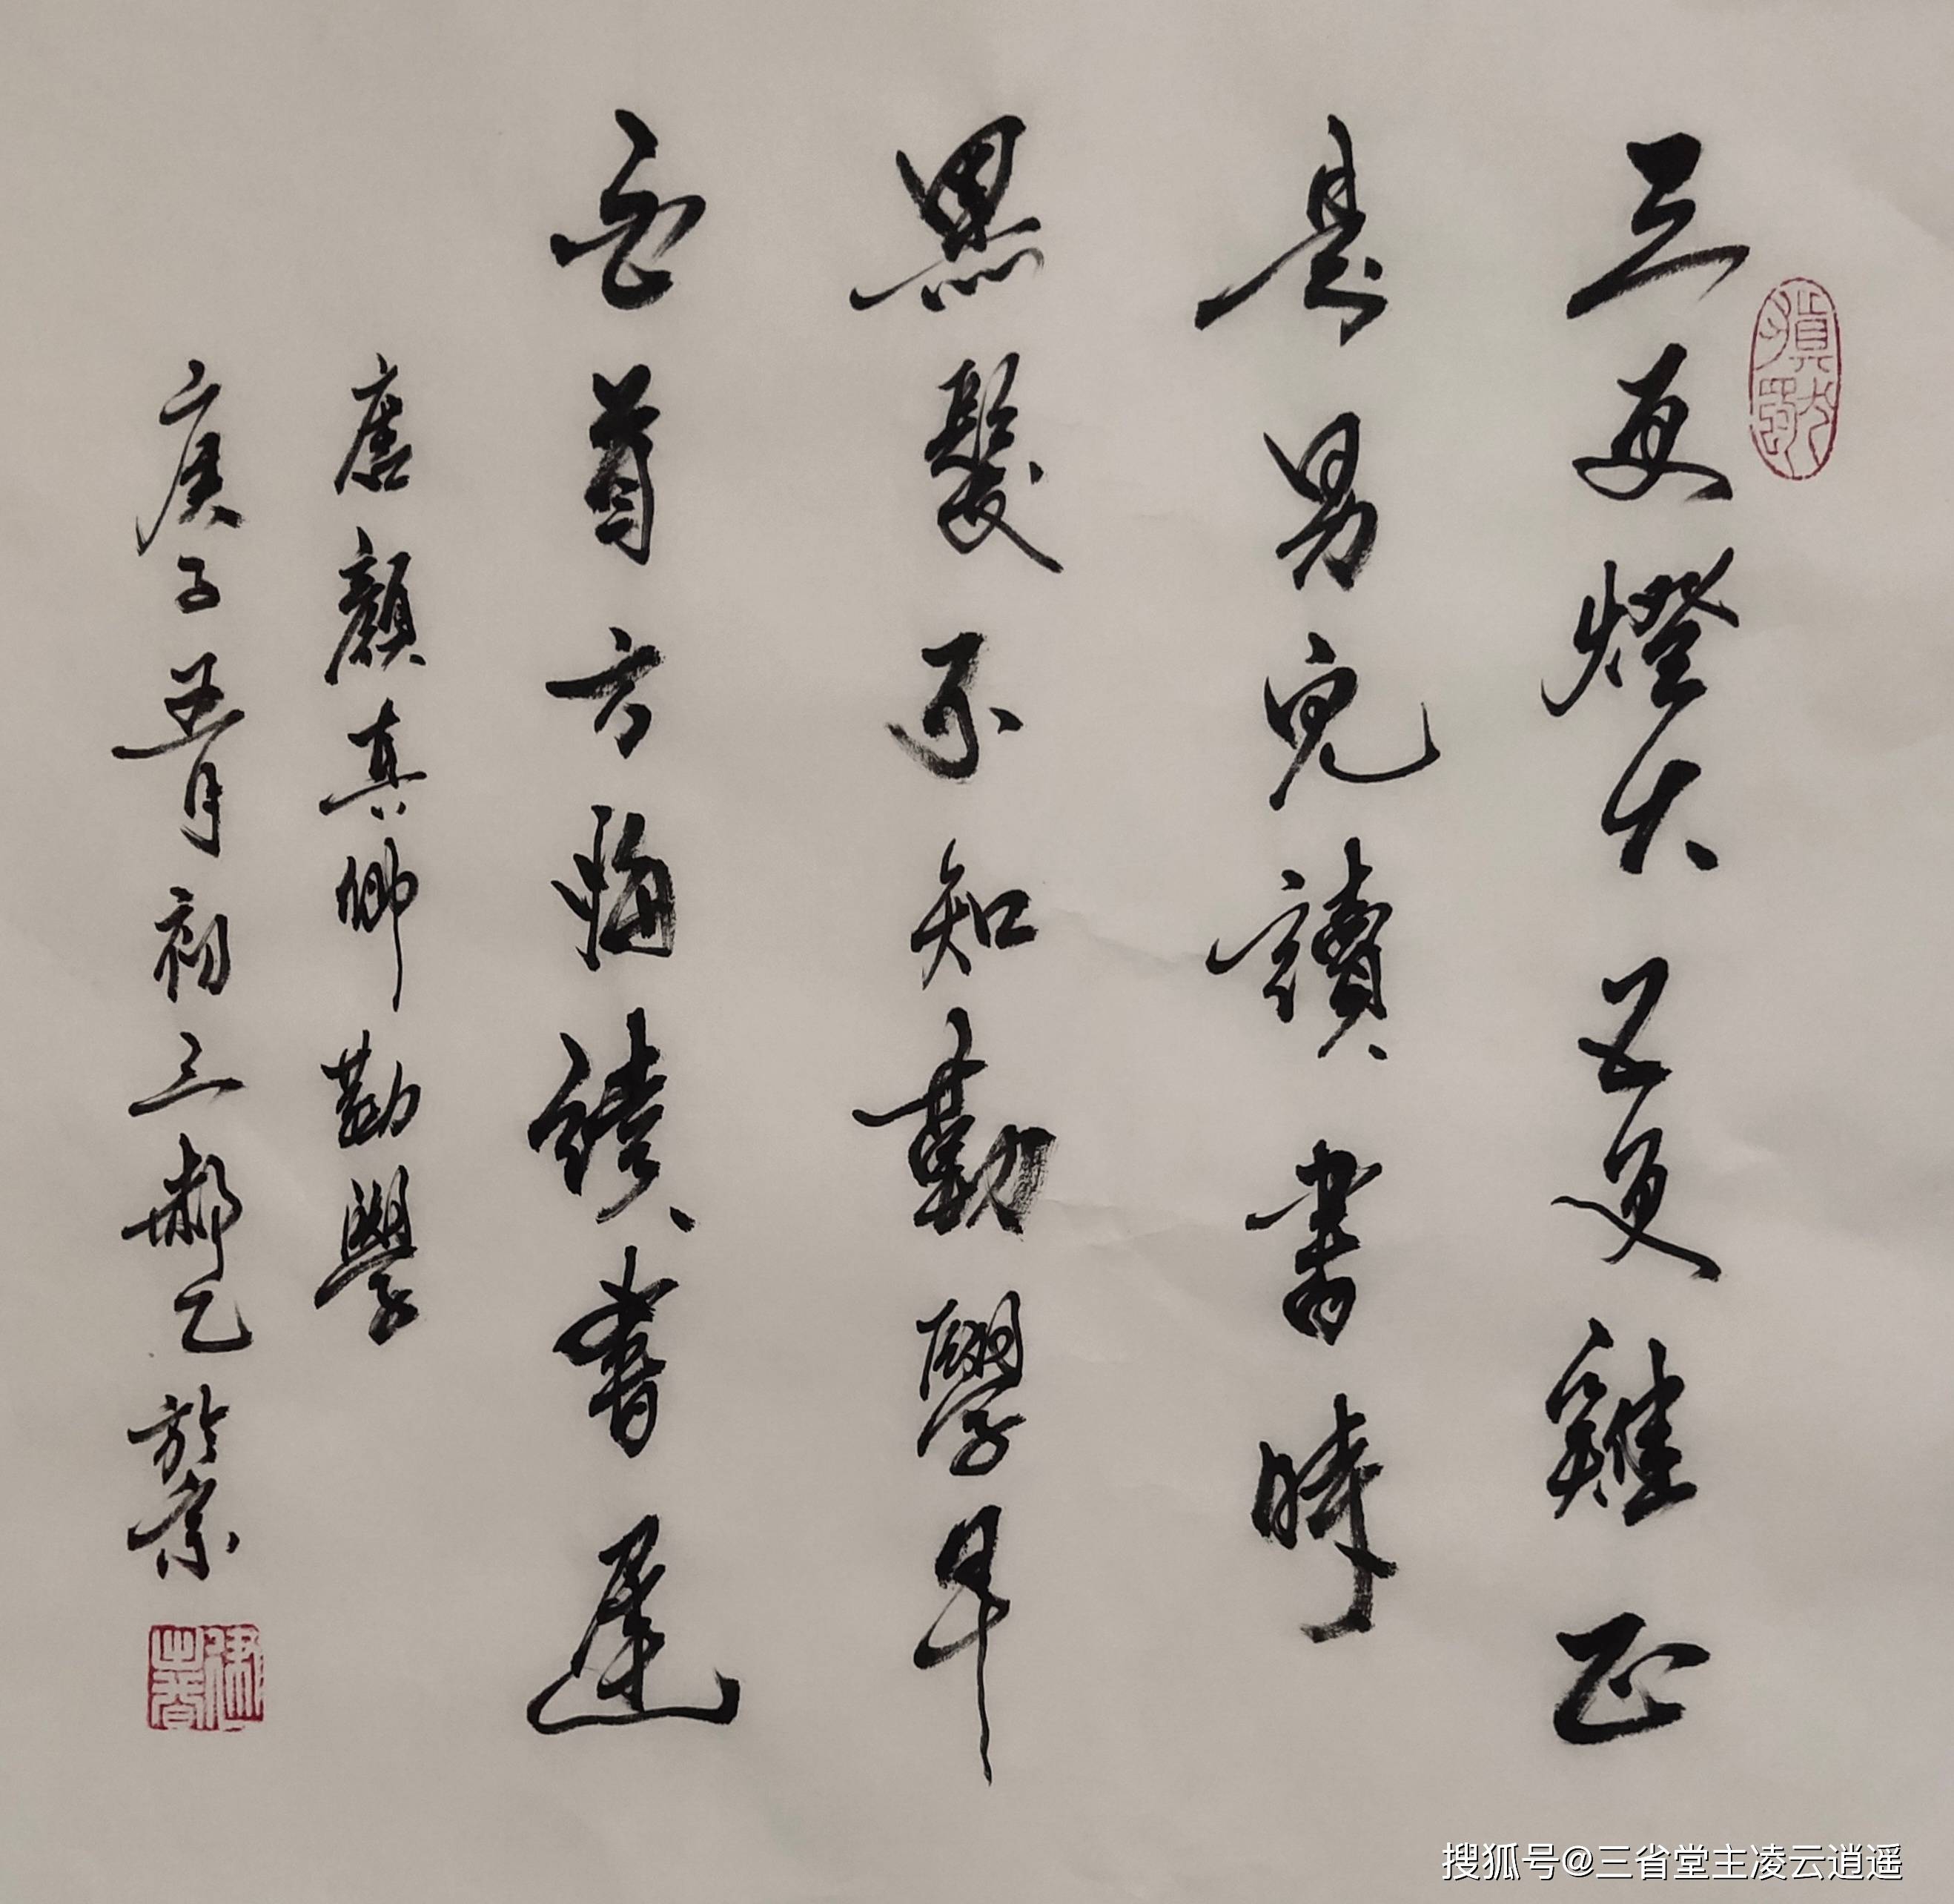 三更燈火五更雞正
是男兒讀書時
黑髮不知勤學早
白首方悔讀書遲
唐顏真卿勸學
庚子五月初三郝乙於京
搜狐号@三省堂主凌云逍遥